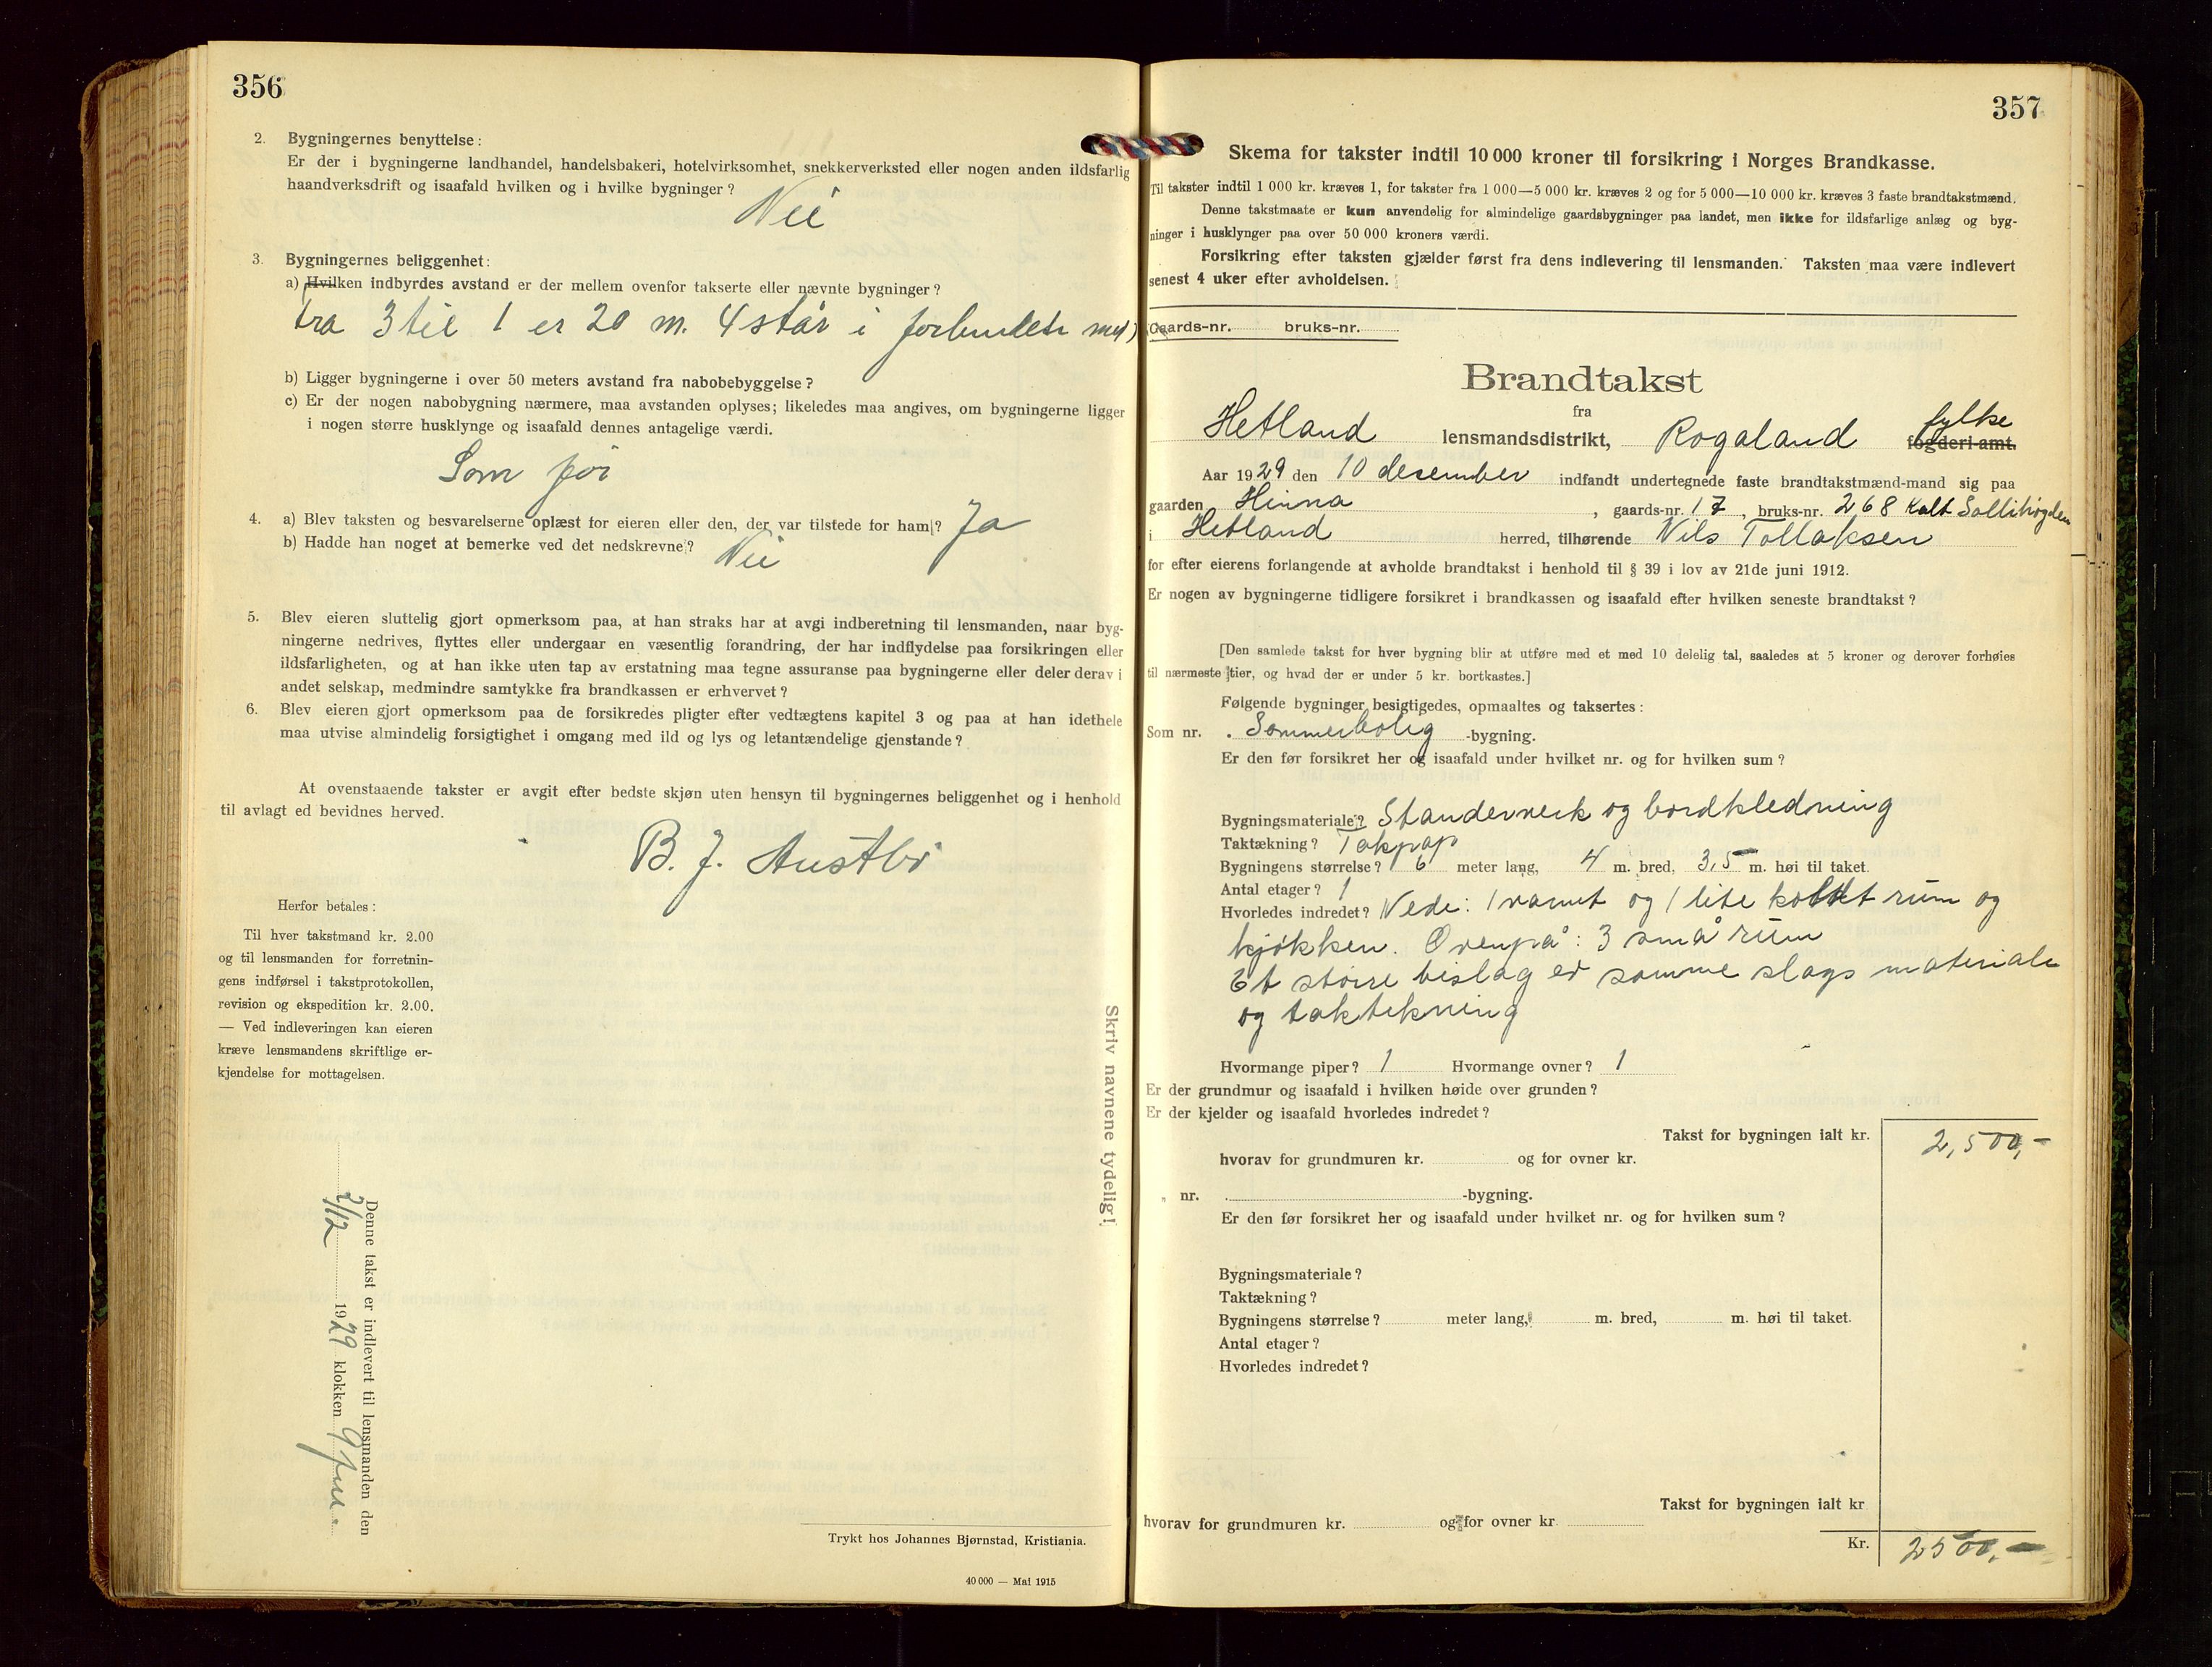 356
2. Bygningernes benyttelse:
Er der i bygningerne landhandel, handelsbakeri, hotelvirksomhet, snekkerverksted eller nogen anden ildsfarlig
haandverksdrift og isaafald hvilken og i hvilke bygninger?
Nei
3. Bygningernes beliggenhet:
a) Hvilken indbyrdes avstand er der mellem ovenfor takserte eller nævnte bygninger?
Fra 3 til 1 er 20 m. 4 står i forbindelse med 1
b) Ligger bygningerne i over 50 meters avstand fra nabobebyggelse?
c) Er der nogen nabobygning nærmere, maa avstanden oplyses; likeledes maa angives, om bygningerne ligger
i nogen større husklynge og isaafald dennes antagelige værdi.
Som før
4. a) Blev taksten og besvarelserne oplæst for eieren eller den, der var tilstede for ham? Ja
b) Hadde han noget at bemerke ved det nedskrevne? Nei
5. Blev eieren sluttelig gjort opmerksom paa, at han straks har at avgi indberetning til lensmanden, naar byg-
ningerne nedrives, flyttes eller undergaar en væsentlig forandring, der har indflydelse paa forsikringen eller
ildsfarligheten, og at han ikke uten tap av erstatning maa tegne assuranse paa bygningerne eller deler derav i
andet selskap, medmindre samtykke fra brandkassen er erhvervet?
6. Blev eieren gjort opmerksom paa de forsikredes pligter efter vedtægtens kapitel 3 og paa at han idethele
maa utvise almindelig forsigtighet i omgang med ild og lys og letantændelige gjenstande?
At ovenstaaende takster er avgit efter bedste skjøn uten hensyn til bygningernes beliggenhet og i henhold
til avlagt ed bevidnes herved.
B. J. Austbø
Herfor betales:
Til hver takstmand kr. 2.00
og til lensmanden for forretnin-
gens indførsel i takstprotokollen,
revision og ekspedition kr. 2.00.
— Ved indleveringen kan eieren
kræve lensmandens skriftlige er-
kjendelse for mottagelsen.
Skriv navnene tydelig!
Denne takst er indlevert til lensmanden den
2/12 1929 klokken 9 fm.
Trykt hos Johannes Bjørnstad, Kristiania.
40 000 — Mai 1915
357
Skema for takster indtil 10 000 kroner til forsikring i Norges Brandkasse.
Til takster indtil 1 000 kr. kræves 1, for takster fra 1 000—5 000 kr. kræves 2 og for 5 000—10 000 kr. kræves 3 faste brandtakstmænd.
Denne takstmaate er kun anvendelig for almindelige gaardsbygninger paa landet, men ikke for ildsfarlige anlæg og byg-
ninger i husklynger paa over 50 000 kroners værdi.
Forsikring efter taksten gjælder først fra dens indlevering til lensmanden. Taksten maa være indlevert
senest 4 uker efter avholdelsen.
Gaards-nr. bruks-nr.
Brandtakst
fra
Hetland lensmandsdistrikt, Rogaland fylke fogderi-amt.
Aar 1929 den 10 desember indfandt undertegnede faste brandtakstmænd-mand sig paa
gaarden Hinna, gaards-nr. 17, bruks-nr. 268 kalt Sollihøgden
i Hetland herred, tilhørende Nils Tollaksen
for efter eierens forlangende at avholde brandtakst i henhold til § 39 i lov av 21de juni 1912.
Er nogen av bygningerne tidligere forsikret i brandkassen og isaafald efter hvilken seneste brandtakst?
[Den samlede takst for hver bygning blir at utføre med et med 10 delelig tal, saaledes at 5 kroner og derover forhøies
til nærmeste tier, og hvad der er under 5 kr. bortkastes.]
Følgende bygninger besigtigedes, opmaaltes og taksertes:
Som nr. . Sommerbolig -bygning.
Er den før forsikret her og isaafald under hvilket nr. og for hvilken sum?
Bygningsmateriale? Standerverk og bordkledning
Taktækning? Takpap
Bygningens størrelse? 6 meter lang, 4 m. bred, 3,5 m. høi til taket.
Antal etager? 1
Hvorledes indredet? Nede: 1 varmt og 1 lite koldt rum og
kjøkken. Ovenpå: 3 små rum
Et større bislag er samme slags materiale
og taktekning
Hvormange piper? 1 Hvormange ovner? 1
Er der grundmur og isaafald i hvilken høide over grunden?
Er der kjelder og isaafald hvorledes indredet?
Takst for bygningen ialt kr. 2,500,-
hvorav for grundmuren kr. og for ovner kr.
„ nr. . -bygning.
Er den før forsikret her og isaafald under hvilket nr. og for hvilken sum?
Bygningsmateriale?
Taktækning?
Bygningens størrelse? meter lang, m. bred, m. høi til taket.
Antal etager?
Hvorledes indredet?
Takst for bygningen ialt kr
hvorav for grundmuren kr. og for ovner kr.
Kr. 2500,-